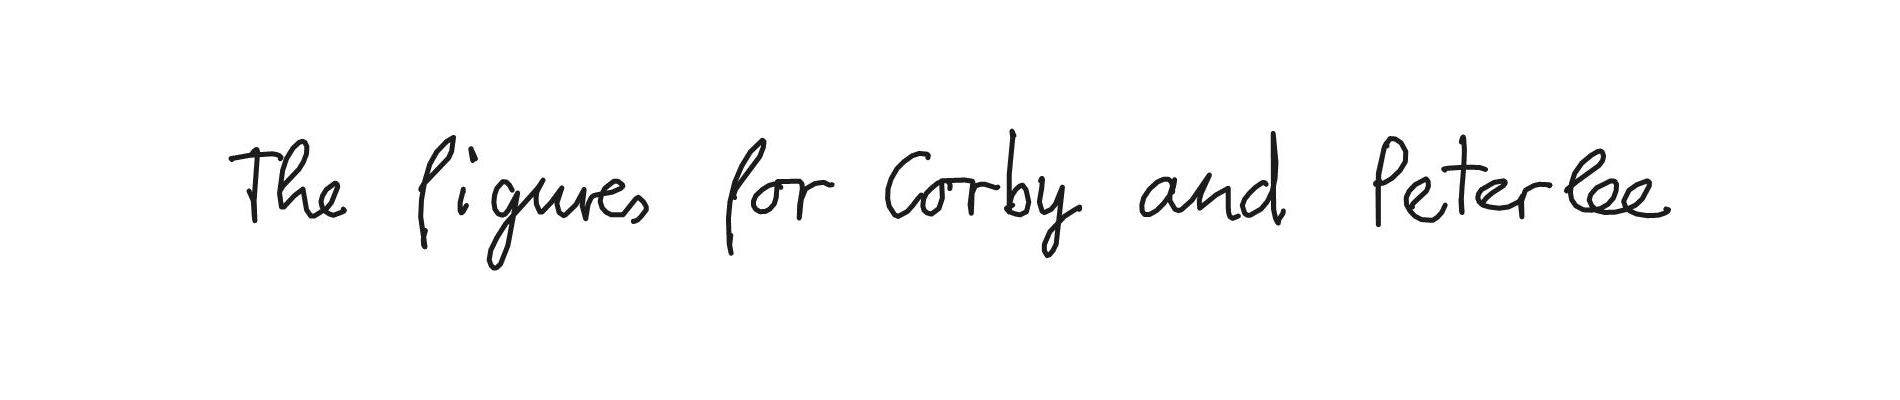 The figures for Corby and Peterlee